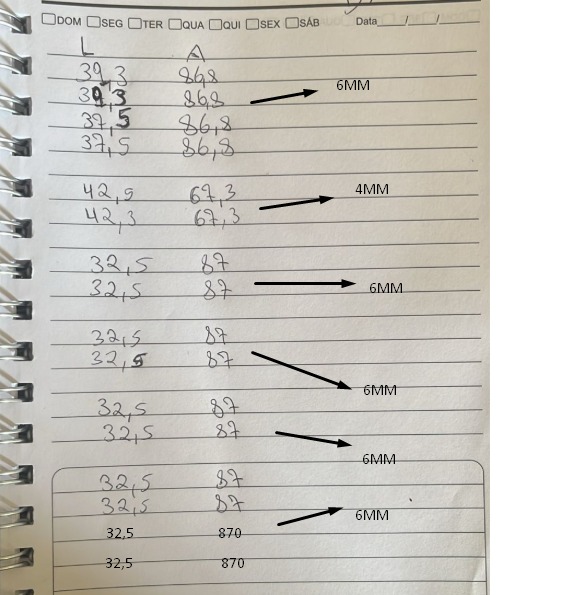 DOM SEG TER QUA QUI SEX SÁB Data___/___/___
L A
39,3 86,8
39,3 86,8 6MM
37,5 86,8
37,5 86,8
42,5 67,3 4MM
42,3 67,3
32,5 87
32,5 87 6MM
32,5 87
32,5 87 6MM
32,5 87
32,5 87 6MM
32,5 87
32,5 87 6MM
32,5 870
32,5 870